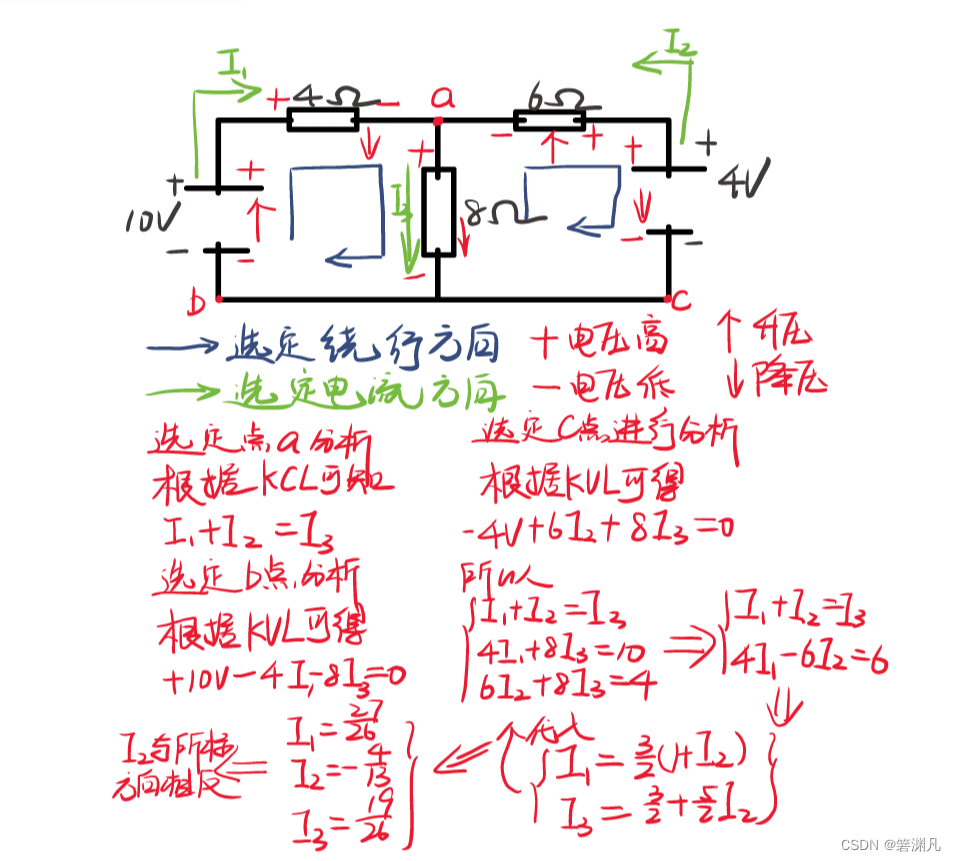 I₁
I₂
+ 4Ω -
a
6Ω
- +
+
+
+
+
+
10V
I₃
8Ω
4V
-
-
-
-
-
b
c
→ 选定绕行方向
+ 电压高
↑ 升压
→ 选定电流方向
- 电压低
↓ 降压
选定点a分析
根据KCL可知
I₁+I₂=I₃
选定b点分析
根据KVL可得
+10V-4I₁-8I₃=0
选定C点进行分析
根据KVL可得
-4V+6I₂+8I₃=0
所以
I₁+I₂=I₃
4I₁+8I₃=10
6I₂+8I₃=4
⇒
I₁+I₂=I₃
4I₁-6I₂=6
⇓
代入
I₁=3/2(1+I₂)
I₃=3/2+5/2I₂
⇐
I₁=27/26
I₂=-4/13
I₃=19/26
⇐
I₂与所标
方向相反
CSDN @箬渊凡